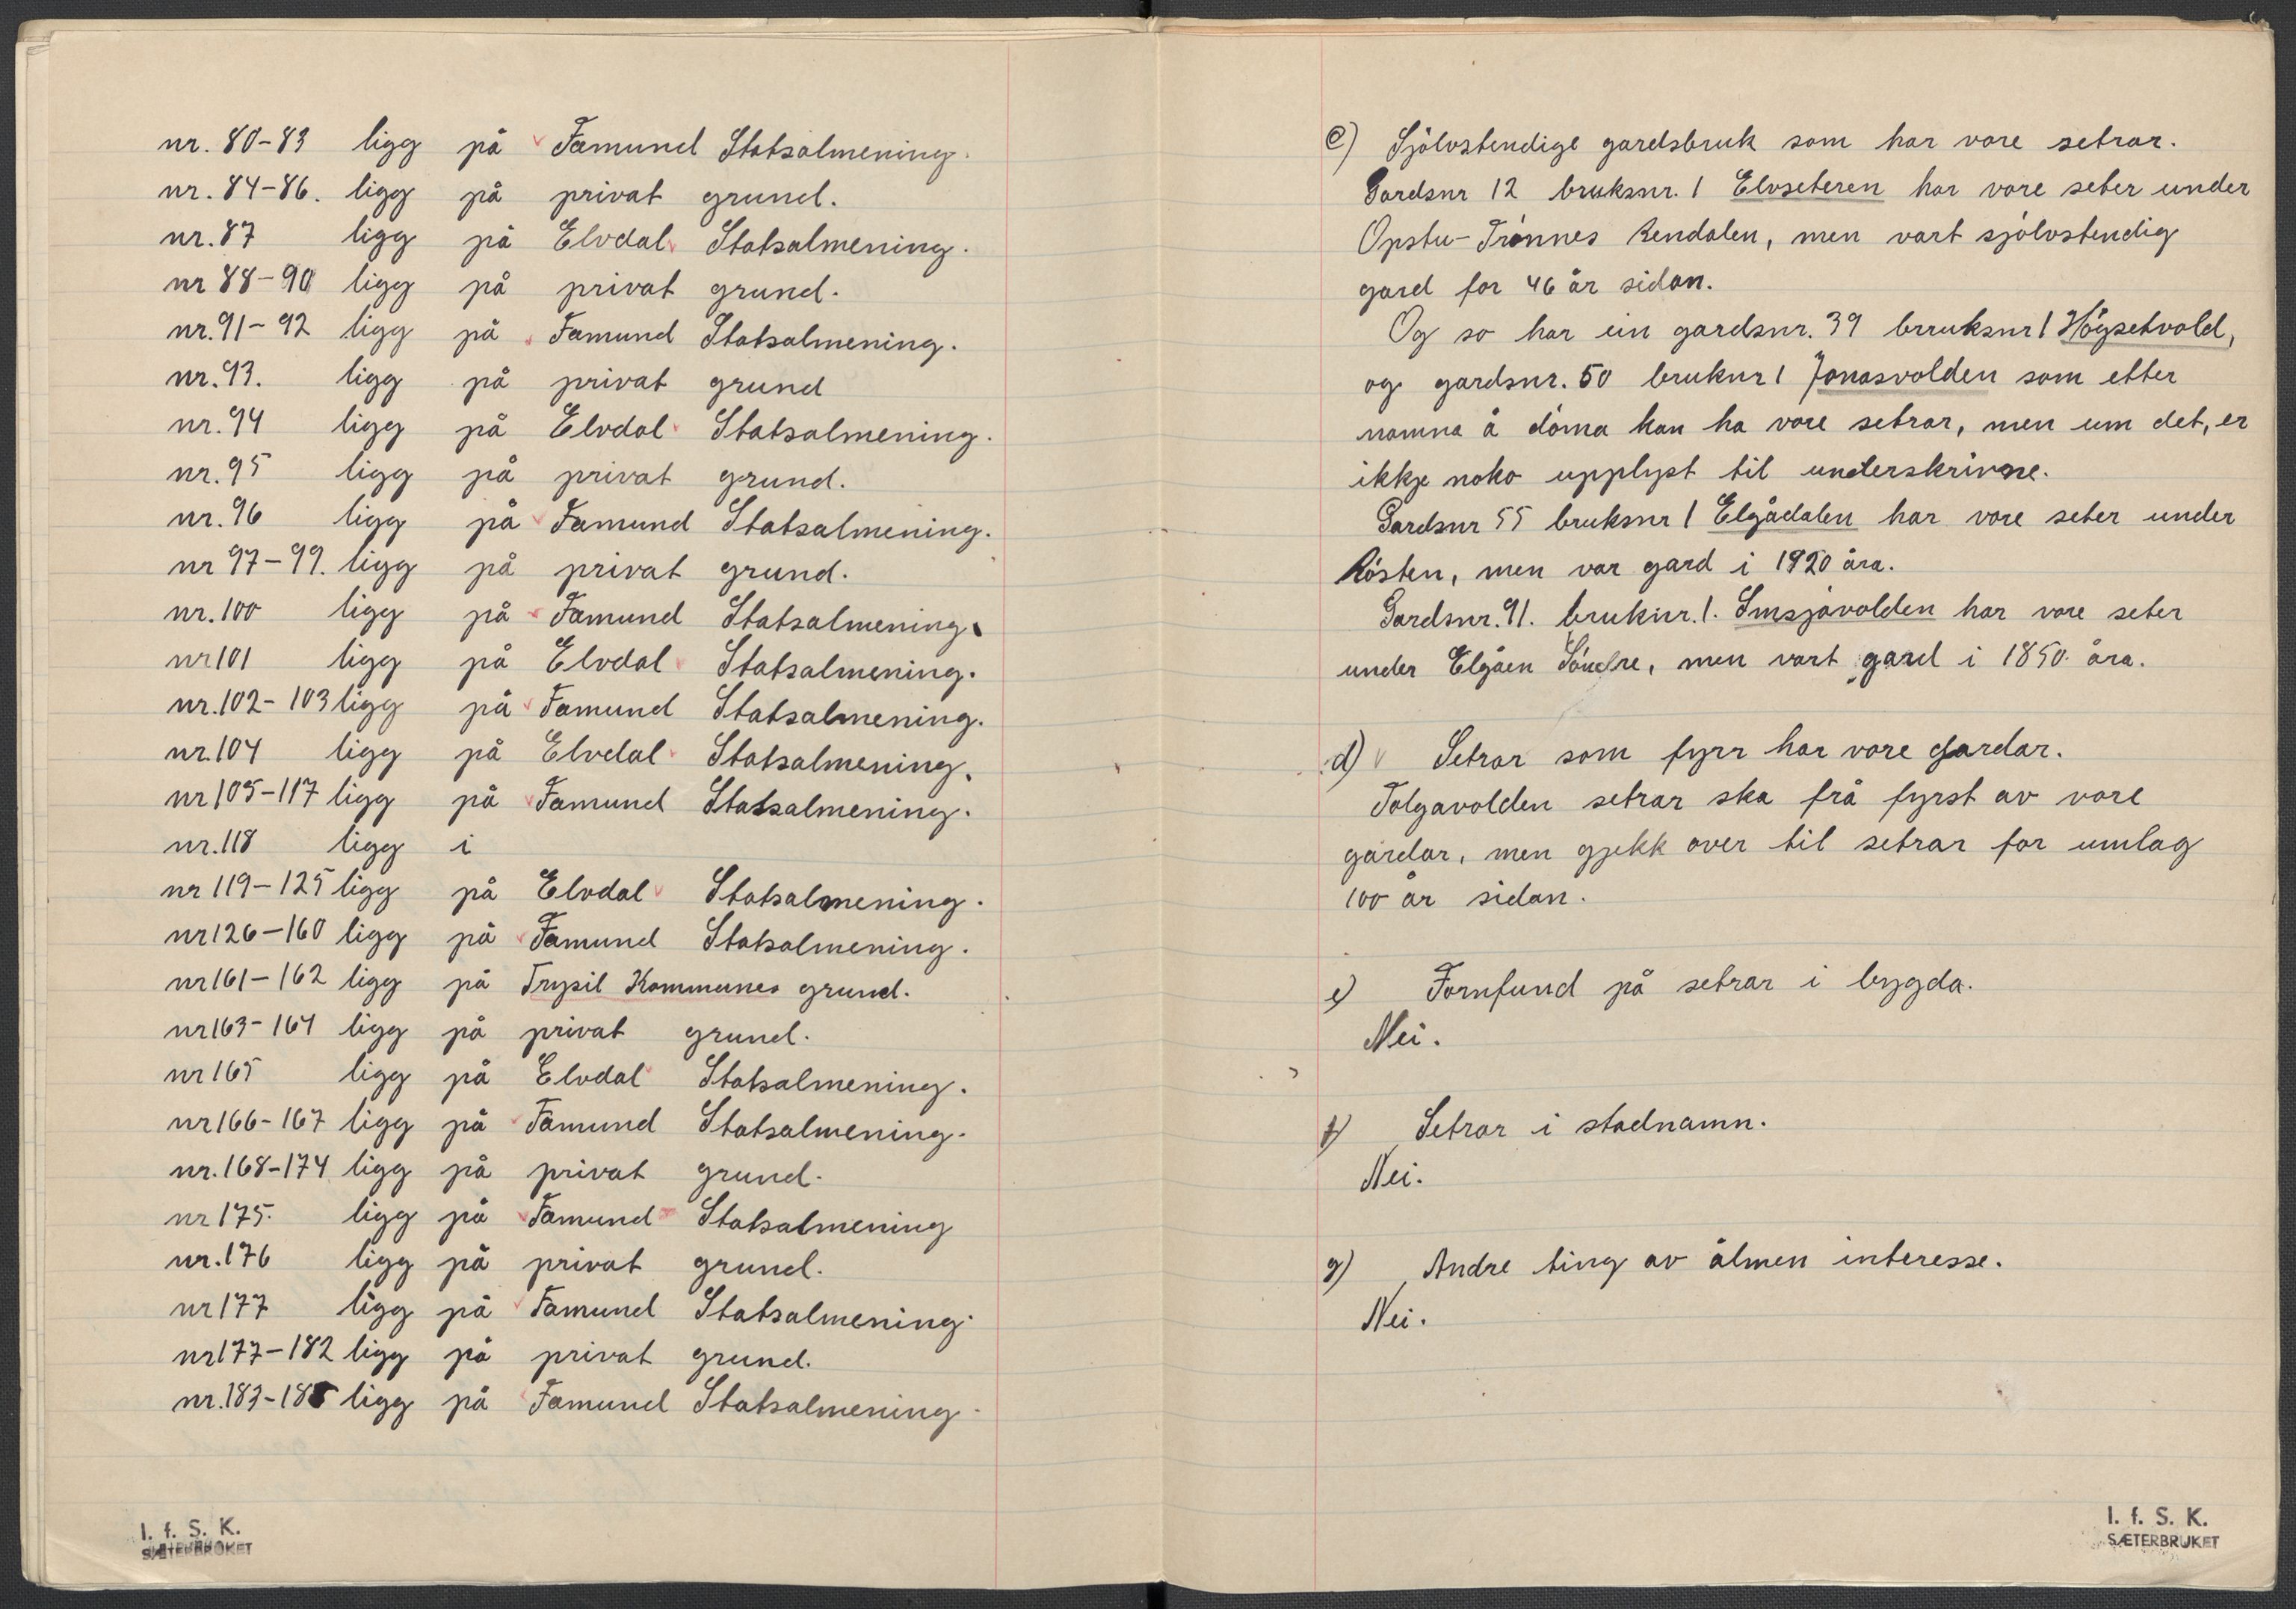 nr. 80-83 ligg på Famund Statsalmening.
nr. 84-86. ligg på privat grund.
nr. 87 ligg på Elvdal Statsalmening.
nr 88-90 ligg på privat grund.
nr. 91-92 ligg på Famund Statsalmening.
nr. 93. ligg på privat grund
nr. 94 ligg på Elvdal Statsalmening.
nr. 95 ligg på privat grund.
nr. 96 ligg på Famund Statsalmening.
nr 97-99. ligg på privat grund.
nr. 100 ligg på Famund Statsalmening.
nr 101 ligg på Elvdal Statsalmening.
nr. 102-103 ligg på Famund Statsalmening.
nr. 104 ligg på Elvdal Statsalmening.
nr 105-117 ligg på Famund Statsalmening.
nr. 118 ligg i
nr 119-125 ligg på Elvdal Statsalmening.
nr 126-160 ligg på Famund Statsalmening.
nr 161-162 ligg på Trysil Kommunes grund.
nr 163-164 ligg på privat grund.
nr 165 ligg på Elvdal Statsalmening.
nr 166-167 ligg på Famund Statsalmening.
nr. 168-174 ligg på privat grund.
nr 175. ligg på Famund Statsalmening
nr. 176 ligg på privat grund.
nr 177 ligg på Famund Statsalmening.
nr 177-182 ligg på privat grund.
nr. 183-185 ligg på Famund Statsalmening.
I. f. S. K.
SÆTERBRUKET
c) Sjölvstendige gardsbruk som har vore setrar.
Gardsnr 12 bruksnr. 1 Elvseteren har vore seter under
Opstu-Trönnes Rendalen, men vart sjölvstendig
gard for 46 år sidan.
Og so har ein gardsnr. 39 brruksnr 1 Högsetvold,
og gardsnr. 50 bruknr 1 Jonasvolden som etter
namna å döma kan ha vore setrar, men um det, er
ikkje noko upplyst til underskrivne.
Gardsnr 55 bruksnr 1 Elgådalen har vore seter under
Rösten, men var gard i 1920 åra.
Gardsnr. 91. bruknr. 1. Smsjövolden har vore seter
under Elgåen Söndre, men vart gard i 1850. åra.
d) Setrar som fyrr har vore gardar.
Tolgavolden setrar ska frå fyrst av vore
gardar, men gjekk over til setrar for umlag
100 år sidan.
e) Fornfund på setrar i bygda.
Nei.
f) Setrar i stadnamn.
Nei.
g) Andre ting av ålmen interesse.
Nei.
I. f. S. K.
SÆTERBRUKET